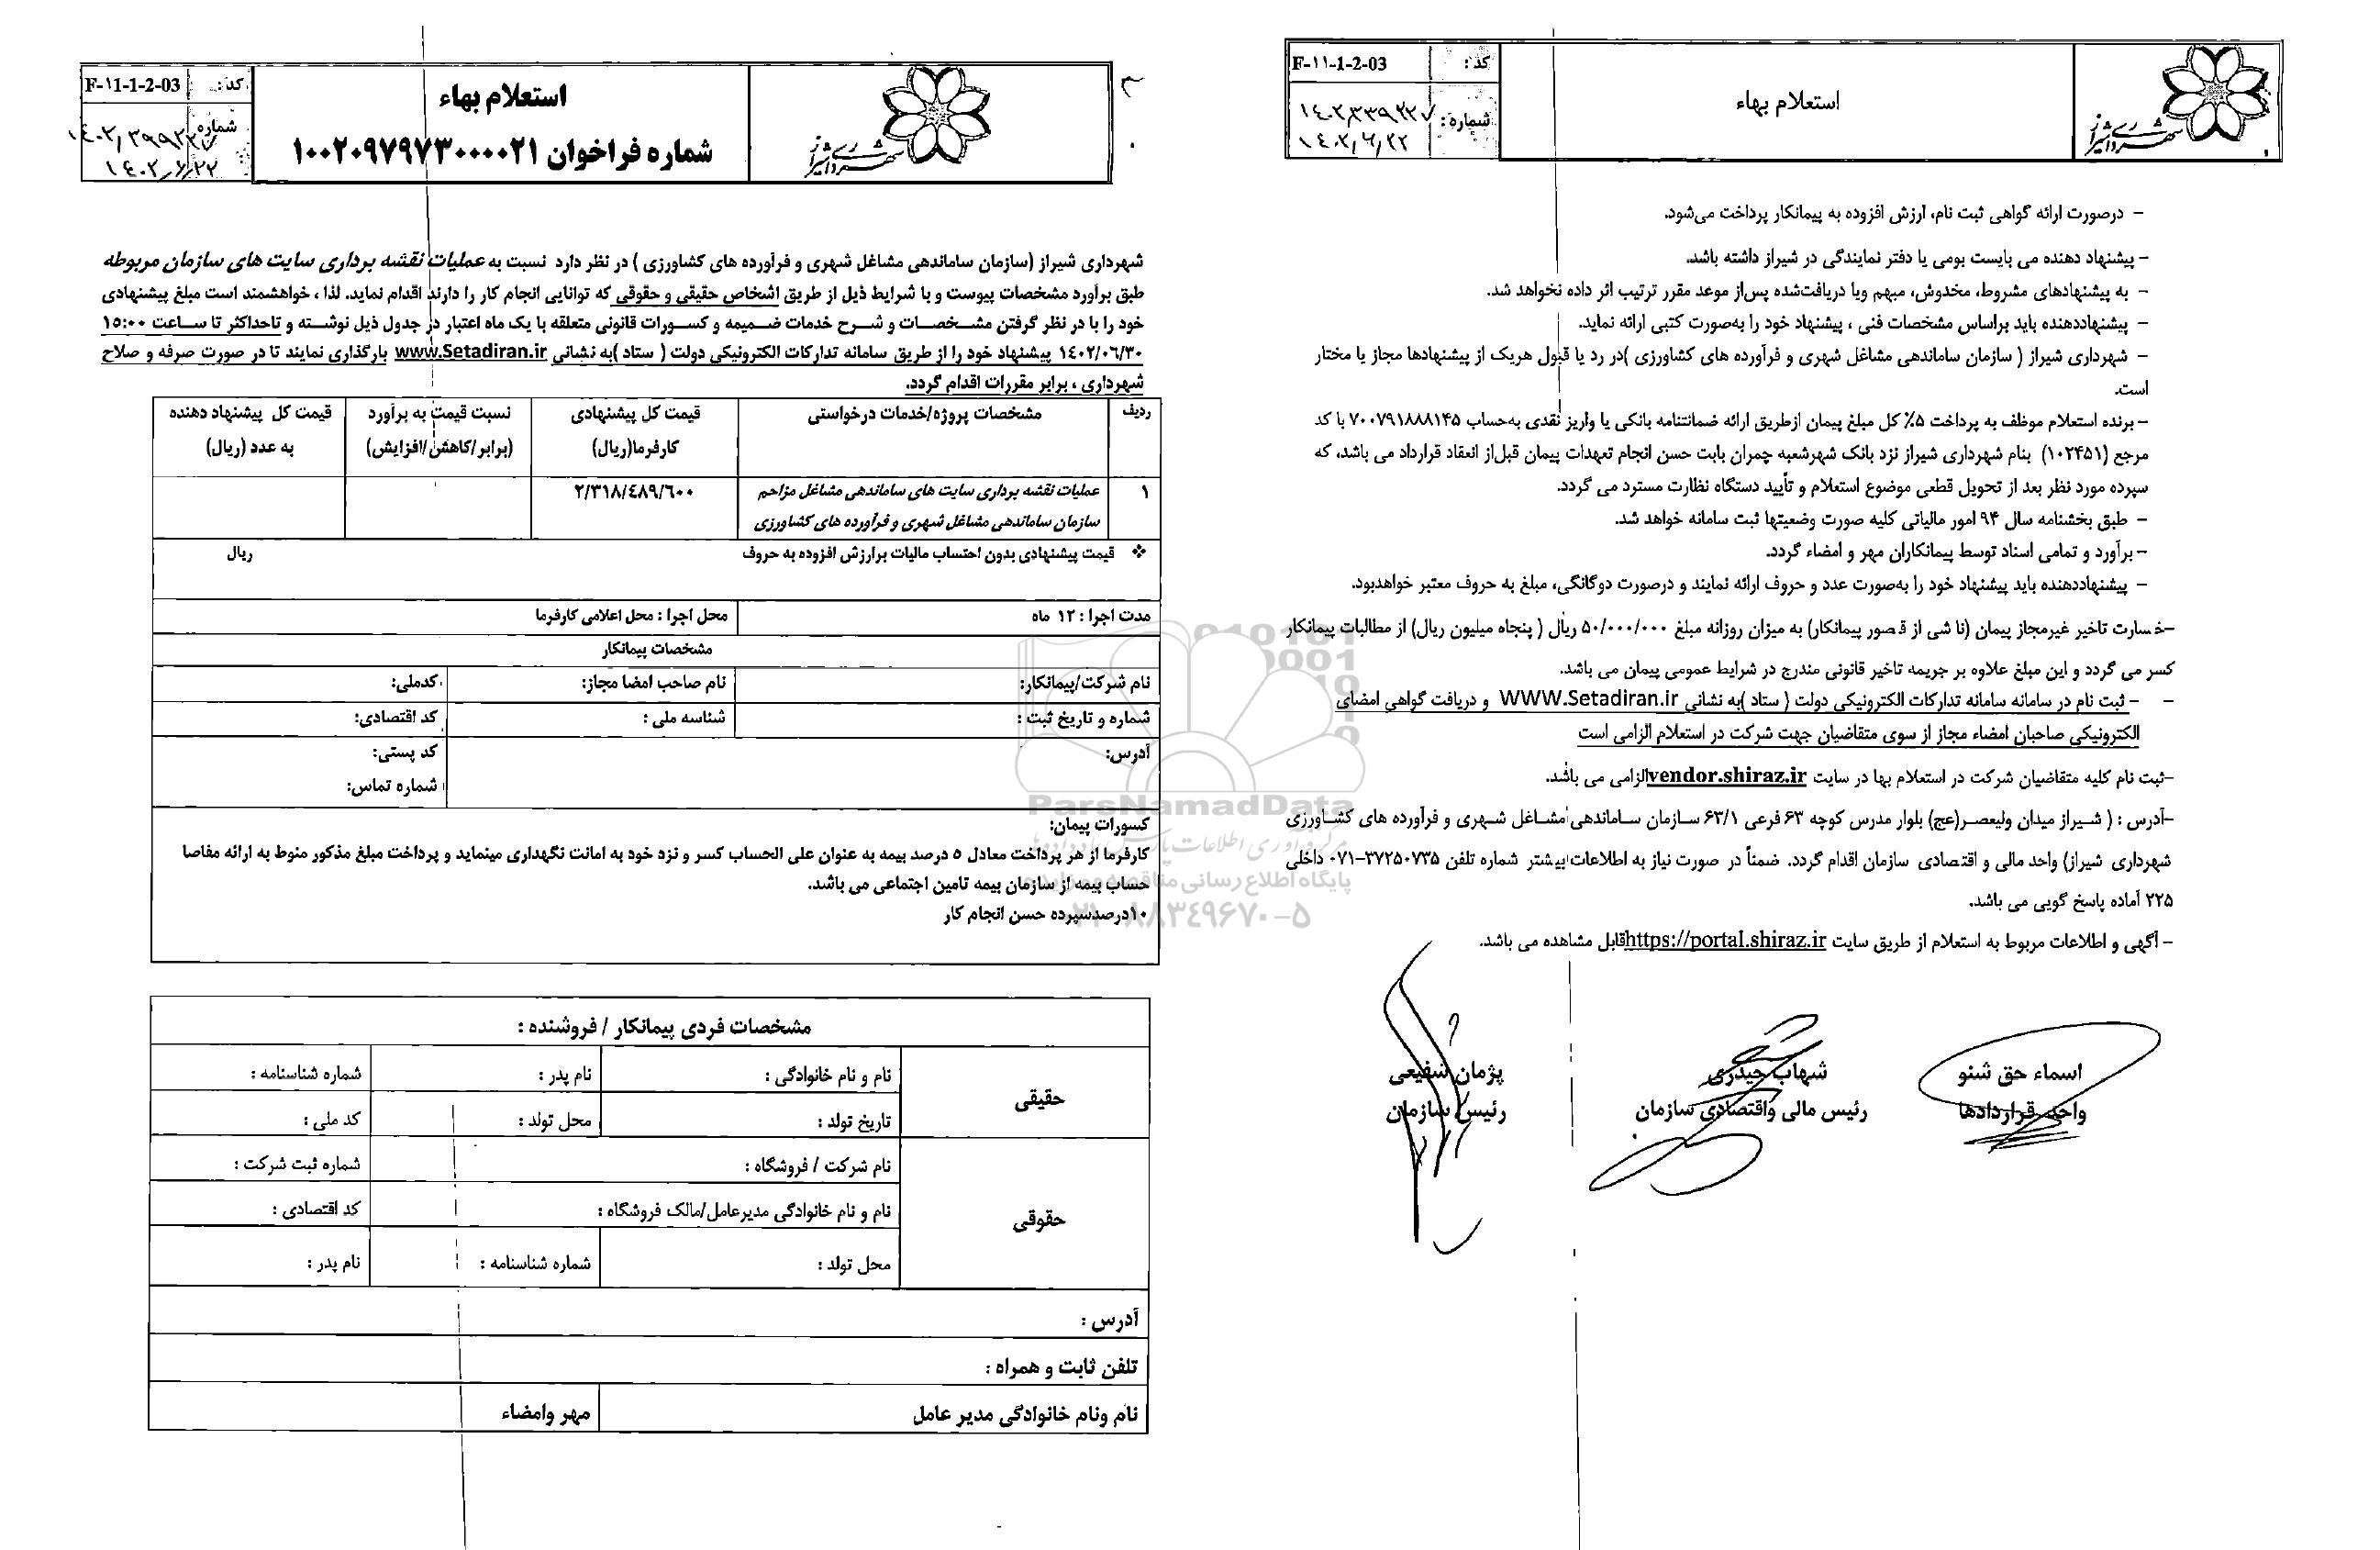 استعلام بهاء
شماره فراخوان ۱۰۰۲۰۹۷۹۷۳۰۰۰۰۲۱
کد :
F-۱1-1-2-03
شماره
شهرداری شیراز
شهرداری شیراز (سازمان ساماندهی مشاغل شهری و فرآورده های کشاورزی ) در نظر دارد نسبت به عملیات نقشه برداری سایت های سازمان مربوطه
طبق برآورد مشخصات پیوست و با شرایط ذیل از طریق اشخاص حقیقی و حقوقی که توانایی انجام کار را دارند اقدام نماید. لذا ، خواهشمند است مبلغ پیشنهادی
خود را با در نظر گرفتن مشخصات و شرح خدمات ضمیمه و کسورات قانونی متعلقه با یک ماه اعتبار در جدول ذیل نوشته و تاحداکثر تا ساعت ۱۵:۰۰
۱۴۰۲/۰۶/۳۰ پیشنهاد خود را از طریق سامانه تدارکات الکترونیکی دولت ( ستاد )به نشانی www.Setadiran.ir بارگذاری نمایند تا در صورت صرفه و صلاح
شهرداری ، برابر مقررات اقدام گردد.
ردیف
مشخصات پروژه/خدمات درخواستی
قیمت کل پیشنهادی کارفرما(ریال)
نسبت قیمت به برآورد (برابر/کاهش/افزایش)
قیمت کل پیشنهاد دهنده به عدد (ریال)
۱
عملیات نقشه برداری سایت های ساماندهی مشاغل مزاحم
سازمان ساماندهی مشاغل شهری و فرآورده های کشاورزی
۲/۳۱۸/۴۸۹/۶۰۰
❖ قیمت پیشنهادی بدون احتساب مالیات برارزش افزوده به حروف ریال
مدت اجرا : ۱۲ ماه
محل اجرا : محل اعلامی کارفرما
مشخصات پیمانکار
نام شرکت/پیمانکار:
نام صاحب امضا مجاز:
کدملی:
شماره و تاریخ ثبت :
شناسه ملی :
کد اقتصادی:
آدرس:
کد پستی:
شماره تماس:
کسورات پیمان:
کارفرما از هر پرداخت معادل ۵ درصد بیمه به عنوان علی الحساب کسر و نزد خود به امانت نگهداری مینماید و پرداخت مبلغ مذکور منوط به ارائه مفاصا
حساب بیمه از سازمان بیمه تامین اجتماعی می باشد.
۱۰درصدسپرده حسن انجام کار
مشخصات فردی پیمانکار / فروشنده :
حقیقی
نام و نام خانوادگی :
نام پدر :
شماره شناسنامه :
تاریخ تولد :
محل تولد :
کد ملی :
حقوقی
نام شرکت / فروشگاه :
شماره ثبت شرکت :
نام و نام خانوادگی مدیرعامل/مالک فروشگاه :
کد اقتصادی :
محل تولد :
شماره شناسنامه :
نام پدر :
آدرس :
تلفن ثابت و همراه :
نام ونام خانوادگی مدیر عامل
مهر وامضاء
استعلام بهاء
کد :
F-۱۱-1-2-03
شماره:
۱۴۰۲/۶/۲۲
شهرداری شیراز
- درصورت ارائه گواهی ثبت نام، ارزش افزوده به پیمانکار پرداخت می‌شود.
- پیشنهاد دهنده می بایست بومی یا دفتر نمایندگی در شیراز داشته باشد.
- به پیشنهادهای مشروط، مخدوش، مبهم ویا دریافت‌شده پس‌از موعد مقرر ترتیب اثر داده نخواهد شد.
- پیشنهاددهنده باید براساس مشخصات فنی ، پیشنهاد خود را به‌صورت کتبی ارائه نماید.
- شهرداری شیراز ( سازمان ساماندهی مشاغل شهری و فرآورده های کشاورزی )در رد یا قبول هریک از پیشنهادها مجاز یا مختار
است.
- برنده استعلام موظف به پرداخت ۵٪ کل مبلغ پیمان ازطریق ارائه ضمانتنامه بانکی یا واریز نقدی به‌حساب ۷۰۰۷۹۱۸۸۸۱۴۵ با کد
مرجع (۱۰۲۴۵۱) بنام شهرداری شیراز نزد بانک شهرشعبه چمران بابت حسن انجام تعهدات پیمان قبل‌از انعقاد قرارداد می باشد، که
سپرده مورد نظر بعد از تحویل قطعی موضوع استعلام و تأیید دستگاه نظارت مسترد می گردد.
- طبق بخشنامه سال ۹۴ امور مالیاتی کلیه صورت وضعیتها ثبت سامانه خواهد شد.
- برآورد و تمامی اسناد توسط پیمانکاران مهر و امضاء گردد.
- پیشنهاددهنده باید پیشنهاد خود را به‌صورت عدد و حروف ارائه نمایند و درصورت دوگانگی، مبلغ به حروف معتبر خواهدبود.
-خسارت تاخیر غیرمجاز پیمان (نا شی از قصور پیمانکار) به میزان روزانه مبلغ ۵۰/۰۰۰/۰۰۰ ریال ( پنجاه میلیون ریال) از مطالبات پیمانکار
کسر می گردد و این مبلغ علاوه بر جریمه تاخیر قانونی مندرج در شرایط عمومی پیمان می باشد.
- - ثبت نام در سامانه سامانه تدارکات الکترونیکی دولت ( ستاد )به نشانی WWW.Setadiran.ir و دریافت گواهی امضای
الکترونیکی صاحبان امضاء مجاز از سوی متقاضیان جهت شرکت در استعلام الزامی است
-ثبت نام کلیه متقاضیان شرکت در استعلام بها در سایت vendor.shiraz.ir الزامی می باشد.
-آدرس : ( شیراز میدان ولیعصر(عج) بلوار مدرس کوچه ۶۳ فرعی ۶۳/۱ سازمان ساماندهی مشاغل شهری و فرآورده های کشاورزی
شهرداری شیراز) واحد مالی و اقتصادی سازمان اقدام گردد. ضمناً در صورت نیاز به اطلاعات بیشتر شماره تلفن ۳۷۲۵۰۷۳۵-۰۷۱ داخلی
۲۲۵ آماده پاسخ گویی می باشد.
- آگهی و اطلاعات مربوط به استعلام از طریق سایت https://portal.shiraz.ir قابل مشاهده می باشد.
اسماء حق شنو
واحد قراردادها
شهاب حیدری
رئیس مالی واقتصادی سازمان
پژمان شفیعی
رئیس سازمان
ParsNamadData
پایگاه اطلاع رسانی